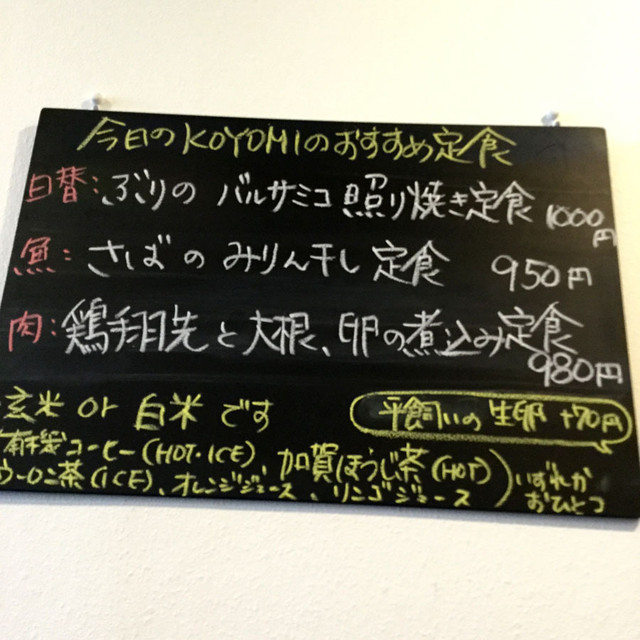 今日のKOYOMIのおすすめ定食
日替:ぶりの バルサミコ 照り焼き定食 1000円
魚: さばの みりん干し 定食 950円
肉:鶏手羽先と大根、卵の煮込み定食 980円
玄米 or 白米 です
平飼いの 生卵 +70円
有機コーヒー(HOT・ICE)、加賀ほうじ茶(HOT)
ウーロン茶(ICE)、オレンジジュース、リンゴジュース
いずれか
おひとつ